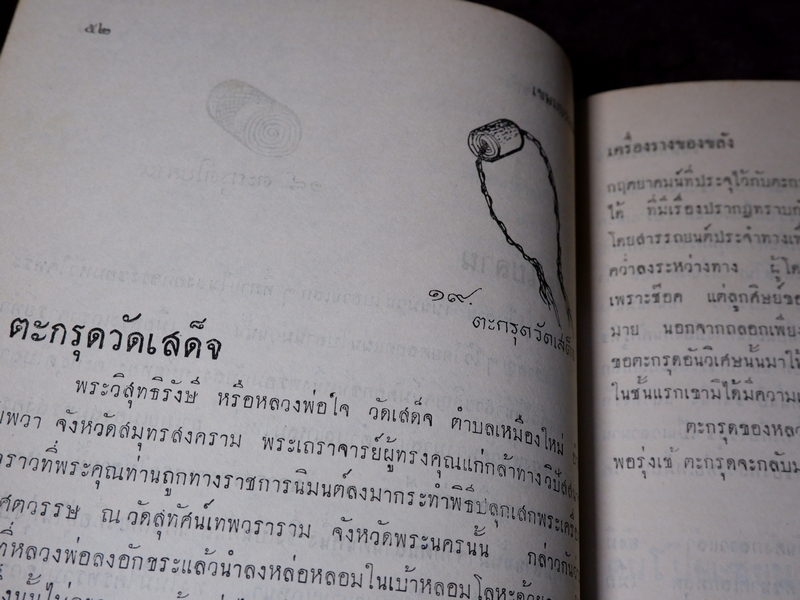 ๕๒
๑๙.
ตะกรุดวัดเสด็จ
ตะกรุดวัดเสด็จ
พระวิสุทธิรังษี หรือหลวงพ่อใจ วัดเสด็จ ตำบลเหมืองใหม่
พวา จังหวัดสมุทรสงคราม พระเถราจารย์ผู้ทรงคุณแก่กล้าทางวิปัสสนา
ราวที่พระคุณท่านถูกทางราชการนิมนต์ลงมากระทำพิธีปลุกเสกพระเครื่อง
ศตวรรษ ณ วัดสุทัศน์เทพวราราม จังหวัดพระนครนั้น กล่าวกัน
ที่หลวงพ่อลงอักขระแล้วนำลงหล่อหลอมในเบ้าหลอมโลหะด้วย
เครื่องรางของขลัง
กฤตยาคมน์ที่ประจุไว้กับตะกรุด
ได้ ที่มีเรื่องปรากฏทราบ
โดยสารรถยนต์ประจำทาง
คว่ำลงระหว่างทาง ผู้โด
เพราะช๊อค แต่ลูกศิษย์ขอ
มาย นอกจากถลอกเพียง
ขอตะกรุดอันวิเศษนั้นมาให้
ในชั้นแรกเขามิได้มีความ
ตะกรุดของหลว
พอรุ่งเช้าตะกรุดจะกลับม